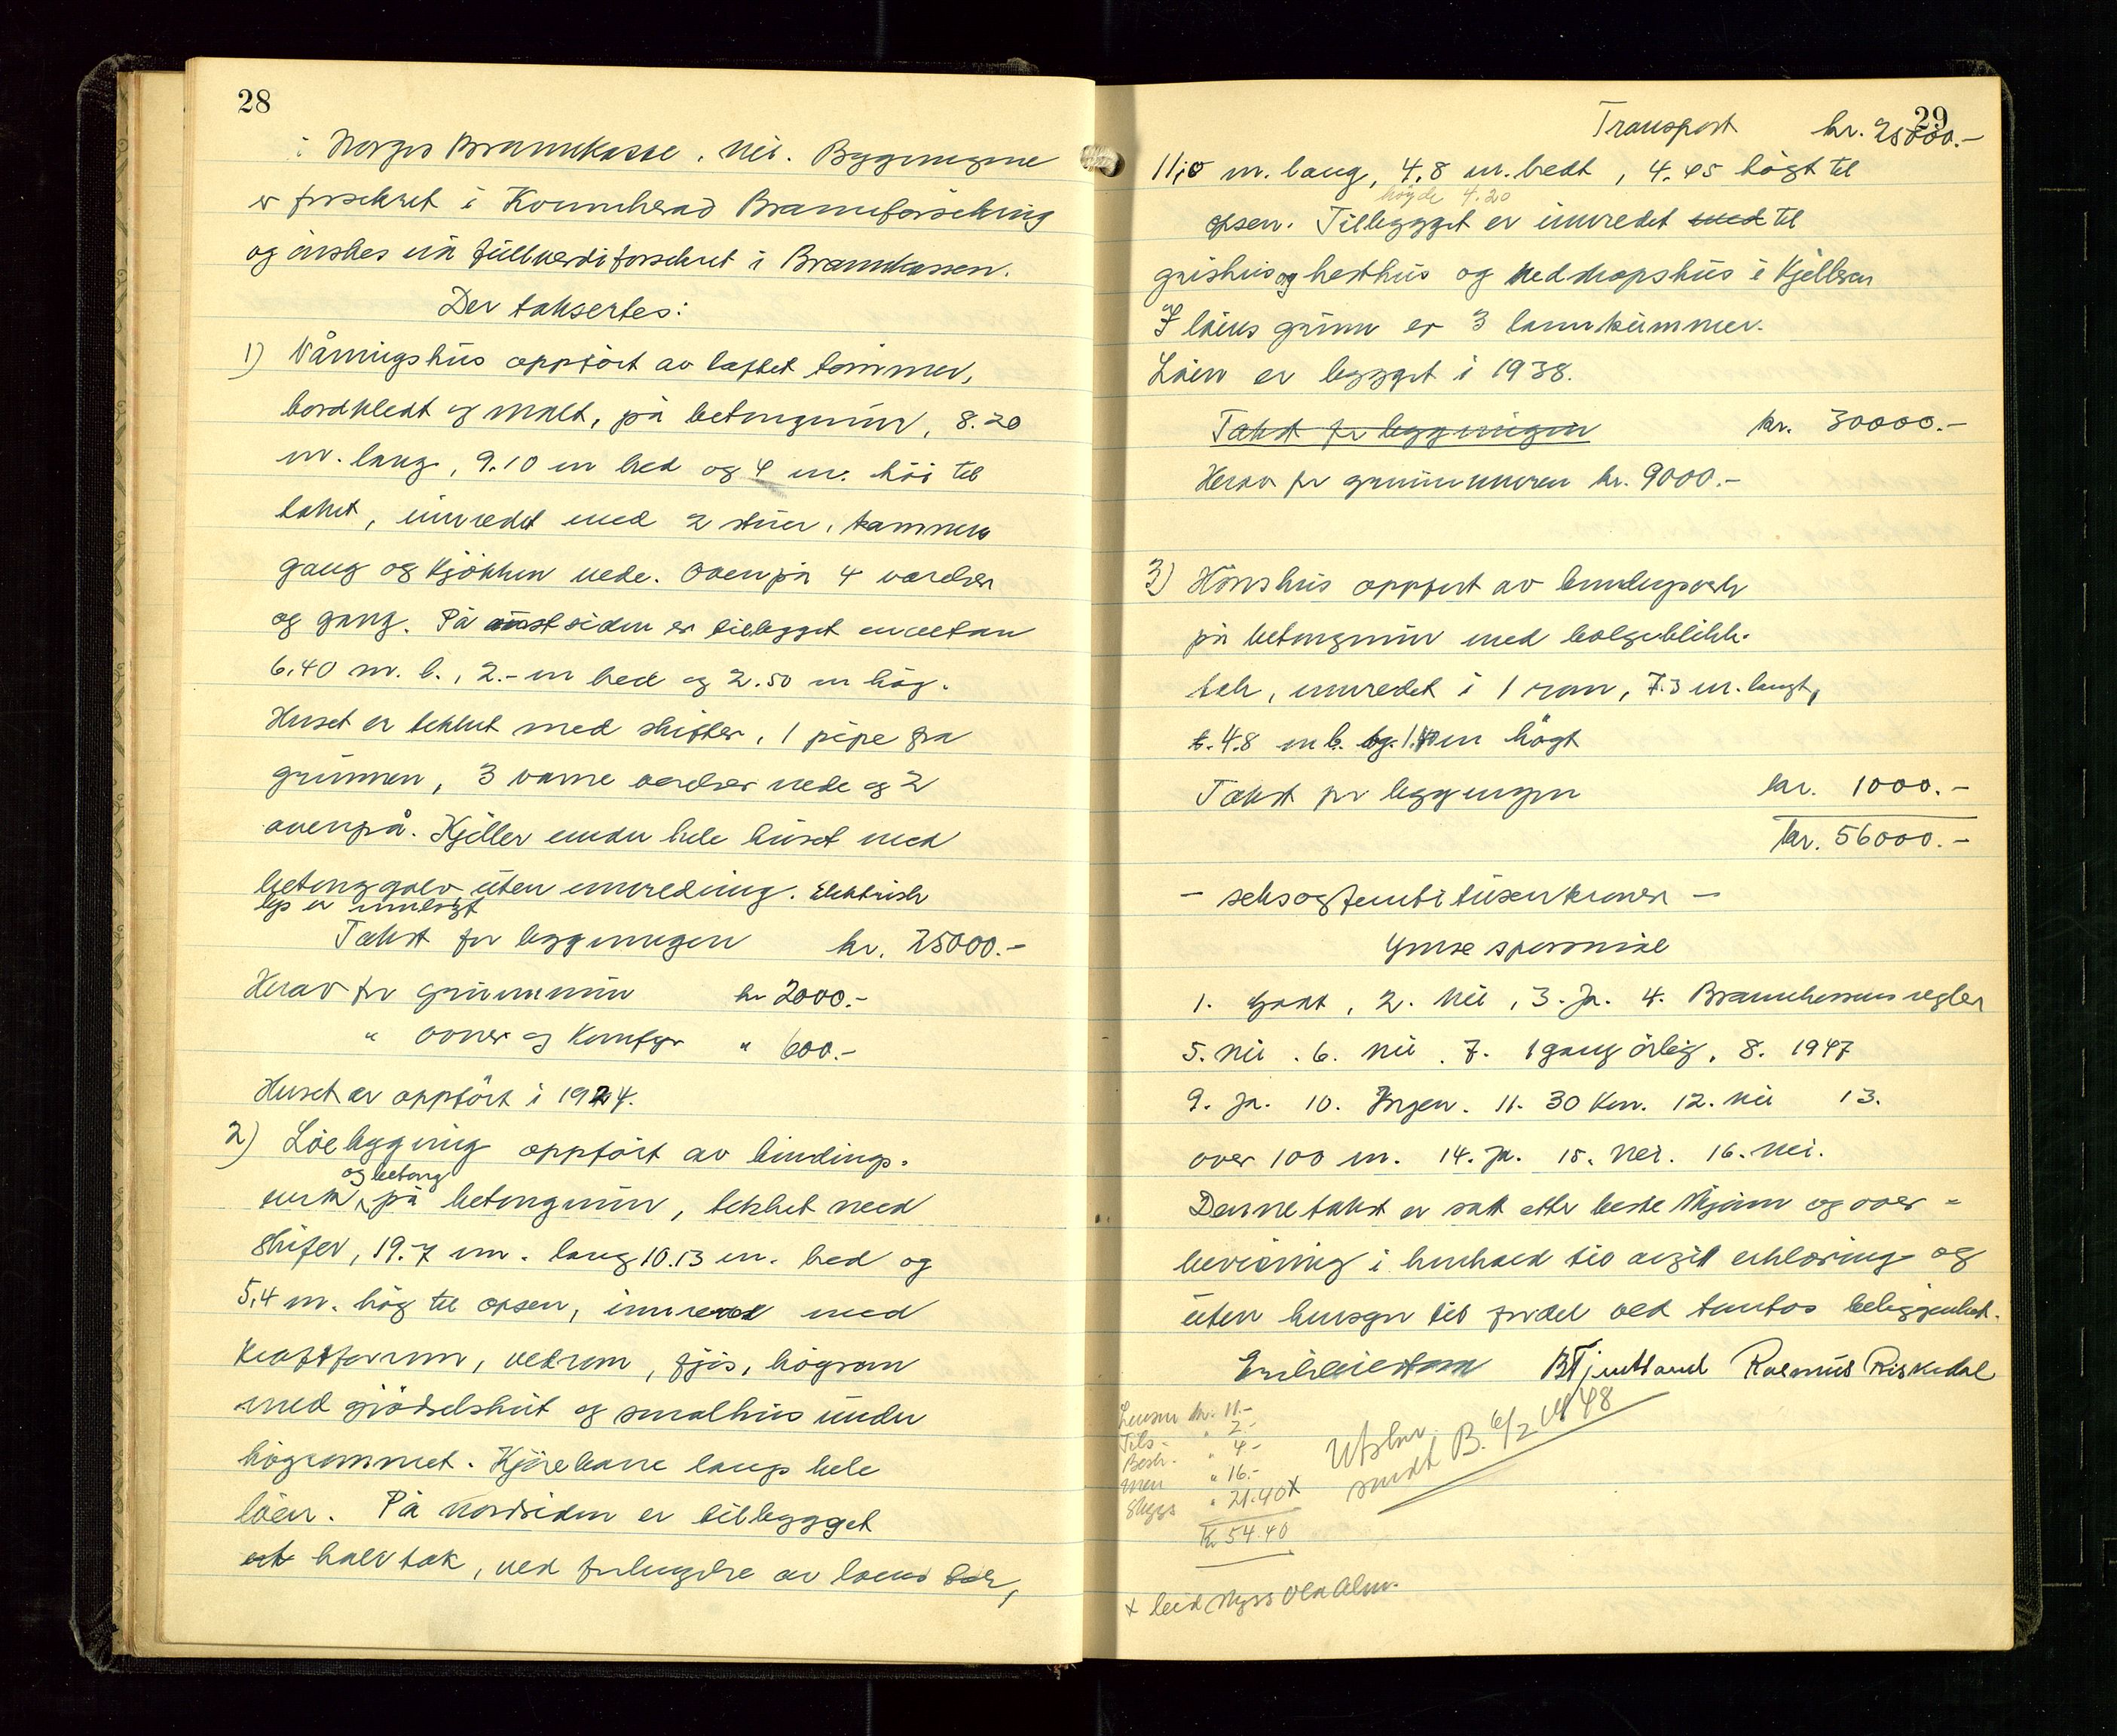 28
i Norges Brannkasse. Nei. Bygningene
er forsikret i Kvinnherad Brannforsikring
og ønskes nå fullverdiforsikret i Brannkassen.
Der taksertes:
1) Våningshus oppført av laftet tømmer,
bordkledt og malt, på betongmur, 8.20
m. lang, 9.10 m bred og 4 m. høi til
taket, innredet med 2 stuer, kammers
gang og kjøkken nede. Ovenpå 4 værelser
og gang. På austsiden er tilbygget en veranda
6.40 m. l., 2.- m bred og 2.50 m høg.
Huset er tekket med skifter, 1 pipe fra
grunnen, 3 varme værelser nede og 2
ovenpå. Kjeller under hele huset med
betonggolv uten innredning. Elektrisk
lys er innlagt
Takst for bygningen kr. 25000.-
Herav for grunnmur kr 2000.-
" ovner og komfyr " 600.-
Huset er oppført i 1924.
2) Løebygning oppført av bindings-
og betong
verk på betongmur, tekket med
skifer, 19.7 m. lang 10.13 m. bred og
5,4 m. høg til opsen, innredet med
kraftforrum, vedrom, fjøs, høgrom
med gjødselshut og smalhus under
høgrommet. Kjørebane langs hele
løen. På nordsiden er tilbygget
et halvtak, ved forlengelse av løens tak,
29
Transport kr. 25000.-
11,0 m. lang, 4.8 m. bredt, 4.45 høgt til
høgde 4.20
opsen. Tilbygget er innredet med til
grishus og hesthus og redskapshus i kjelleren
I løens grunn er 3 landkummer.
Løen er bygget i 1938.
Takst for bygningen kr. 30000.-
Herav for grunnmuren kr. 9000.-
3) Hønshus oppført av bindingsverk
på betongmur med bølgeblikk-
tak, innredet i 1 rom, 7.3 m. langt,
4.8 m b. og 1. m høgt
Takst for bygningen kr. 1000.-
kr. 56000.-
- seksogfemti tusen kroner -
Ymse spørsmål
1. Godt, 2. Nei, 3. Ja. 4. Brannkassens regler
5. Nei. 6. Nei. 7. 1 gang årlig, 8. 1947
9. Ja. 10. Ingen. 11. 30 km. 12. Nei 13.
over 100 m. 14. Ja. 15. Nei. 16. Nei.
Denne takst er satt etter beste skjønn og over-
bevisning i henhold til avgitt erklæring og
uten hensyn til fordel ved tomtas beliggenhet.
B Tjentland Rasmus Riskedal
Lensm kr. 11.-
Tils - " 2.-
Besk. " 4.-
Men " 16.-
Skyss " 21.40 x
Kr 54.40
Utskr.
sendt B. 6/2 1948
x leid skyss